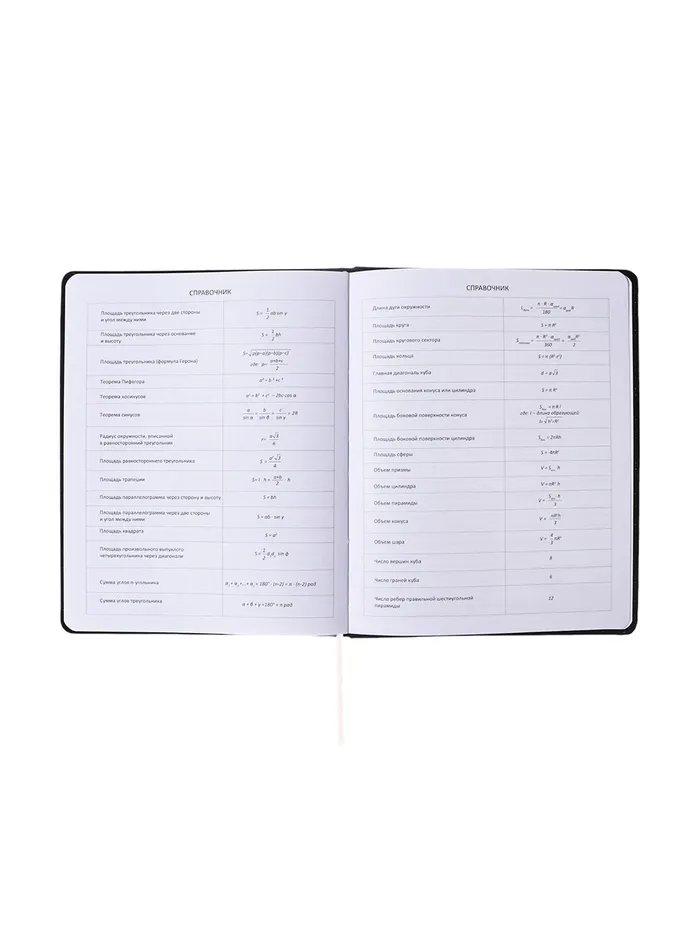 СПРАВОЧНИК
Площадь треугольника через две стороны
и угол между ними
S= 1/2 ab sin γ
Площадь треугольника через основание
и высоту
S= 1/2 bh
Площадь треугольника (формула Герона)
S=√p(p−a)(p−b)(p−c)
где: p= a+b+c/2
Теорема Пифагора
Теорема косинусов
a² = b² + c² − 2bc·cos α
Теорема синусов
a/sin α = b/sin β = c/sin γ = 2R
Радиус окружности, вписанной
в равносторонний треугольник
r= a√3/6
Площадь разностороннего треугольника
S= a²√3/4
Площадь трапеции
Площадь параллелограмма через сторону и высоту
S = bh
Площадь параллелограмма через две стороны
и угол между ними
S = ab · sin γ
Площадь квадрата
S = a²
Площадь произвольного выпуклого
четырехугольника через диагонали
Сумма углов n-угольника
Сумма углов треугольника
СПРАВОЧНИК
Длина дуги окружности
Площадь круга
S = π R²
Площадь кругового сектора
Площадь кольца
Главная диагональ куба
d = a√3
Площадь основания конуса или цилиндра
S = π R²
Площадь боковой поверхности конуса
где: l – длина образующей
Площадь боковой поверхности цилиндра
Sбок = 2πRh
Площадь сферы
S = 4πR²
Объем призмы
V = Sосн h
Объем цилиндра
V = πR² h
Объем пирамиды
V = Sосн·h/3
Объем конуса
V = πR²h/3
Объем шара
V = 4/3 πR³
Число вершин куба
8
Число граней куба
6
Число ребер правильной шестиугольной
пирамиды
12